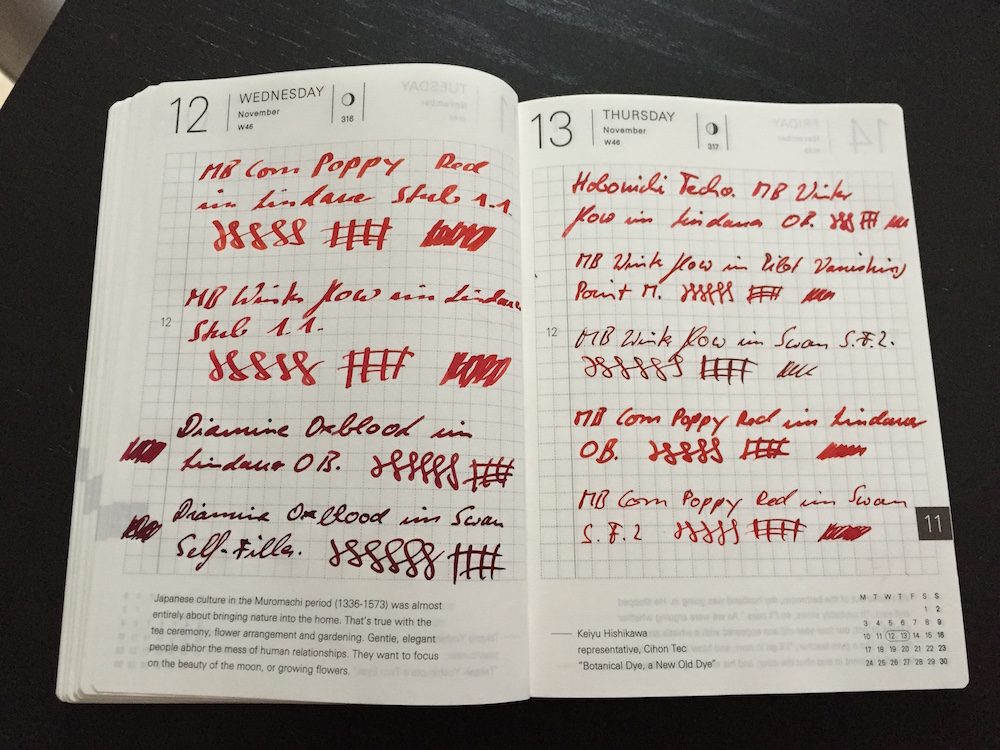 12
WEDNESDAY
November
W46
316
MB Corn Poppy Red
in Lindauer Stub 1.1.
MB Winter flow in Lindauer
12
Stub 1.1.
Diamine Oxblood in
Lindauer OB.
Diamine Oxblood in Swan
Self-Filler.
Japanese culture in the Muromachi period (1336-1573) was almost
entirely about bringing nature into the home. That's true with the
tea ceremony, flower arrangement and gardening. Gentle, elegant
people abhor the mess of human relationships. They want to focus
on the beauty of the moon, or growing flowers.
13
THURSDAY
November
W46
317
Hobonichi Techo. MB Winter
flow in Lindauer OB.
MB Wink flow in Pilot Vanishing
Point M.
12
MB Wink flow in Swan S.F.2.
MB Corn Poppy Red in Lindauer
OB.
MB Corn Poppy Red in Swan
S.F.2
11
Keiyu Hishikawa
representative, Cihon Tec
"Botanical Dye, a New Old Dye"
M T W T F S S
1 2
3 4 5 6 7 8 9
10 11 12 13 14 15 16
17 18 19 20 21 22 23
24 25 26 27 28 29 30